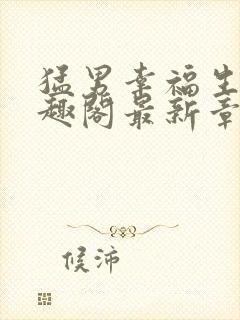 猛男幸福生
趣阁最新章
候沛